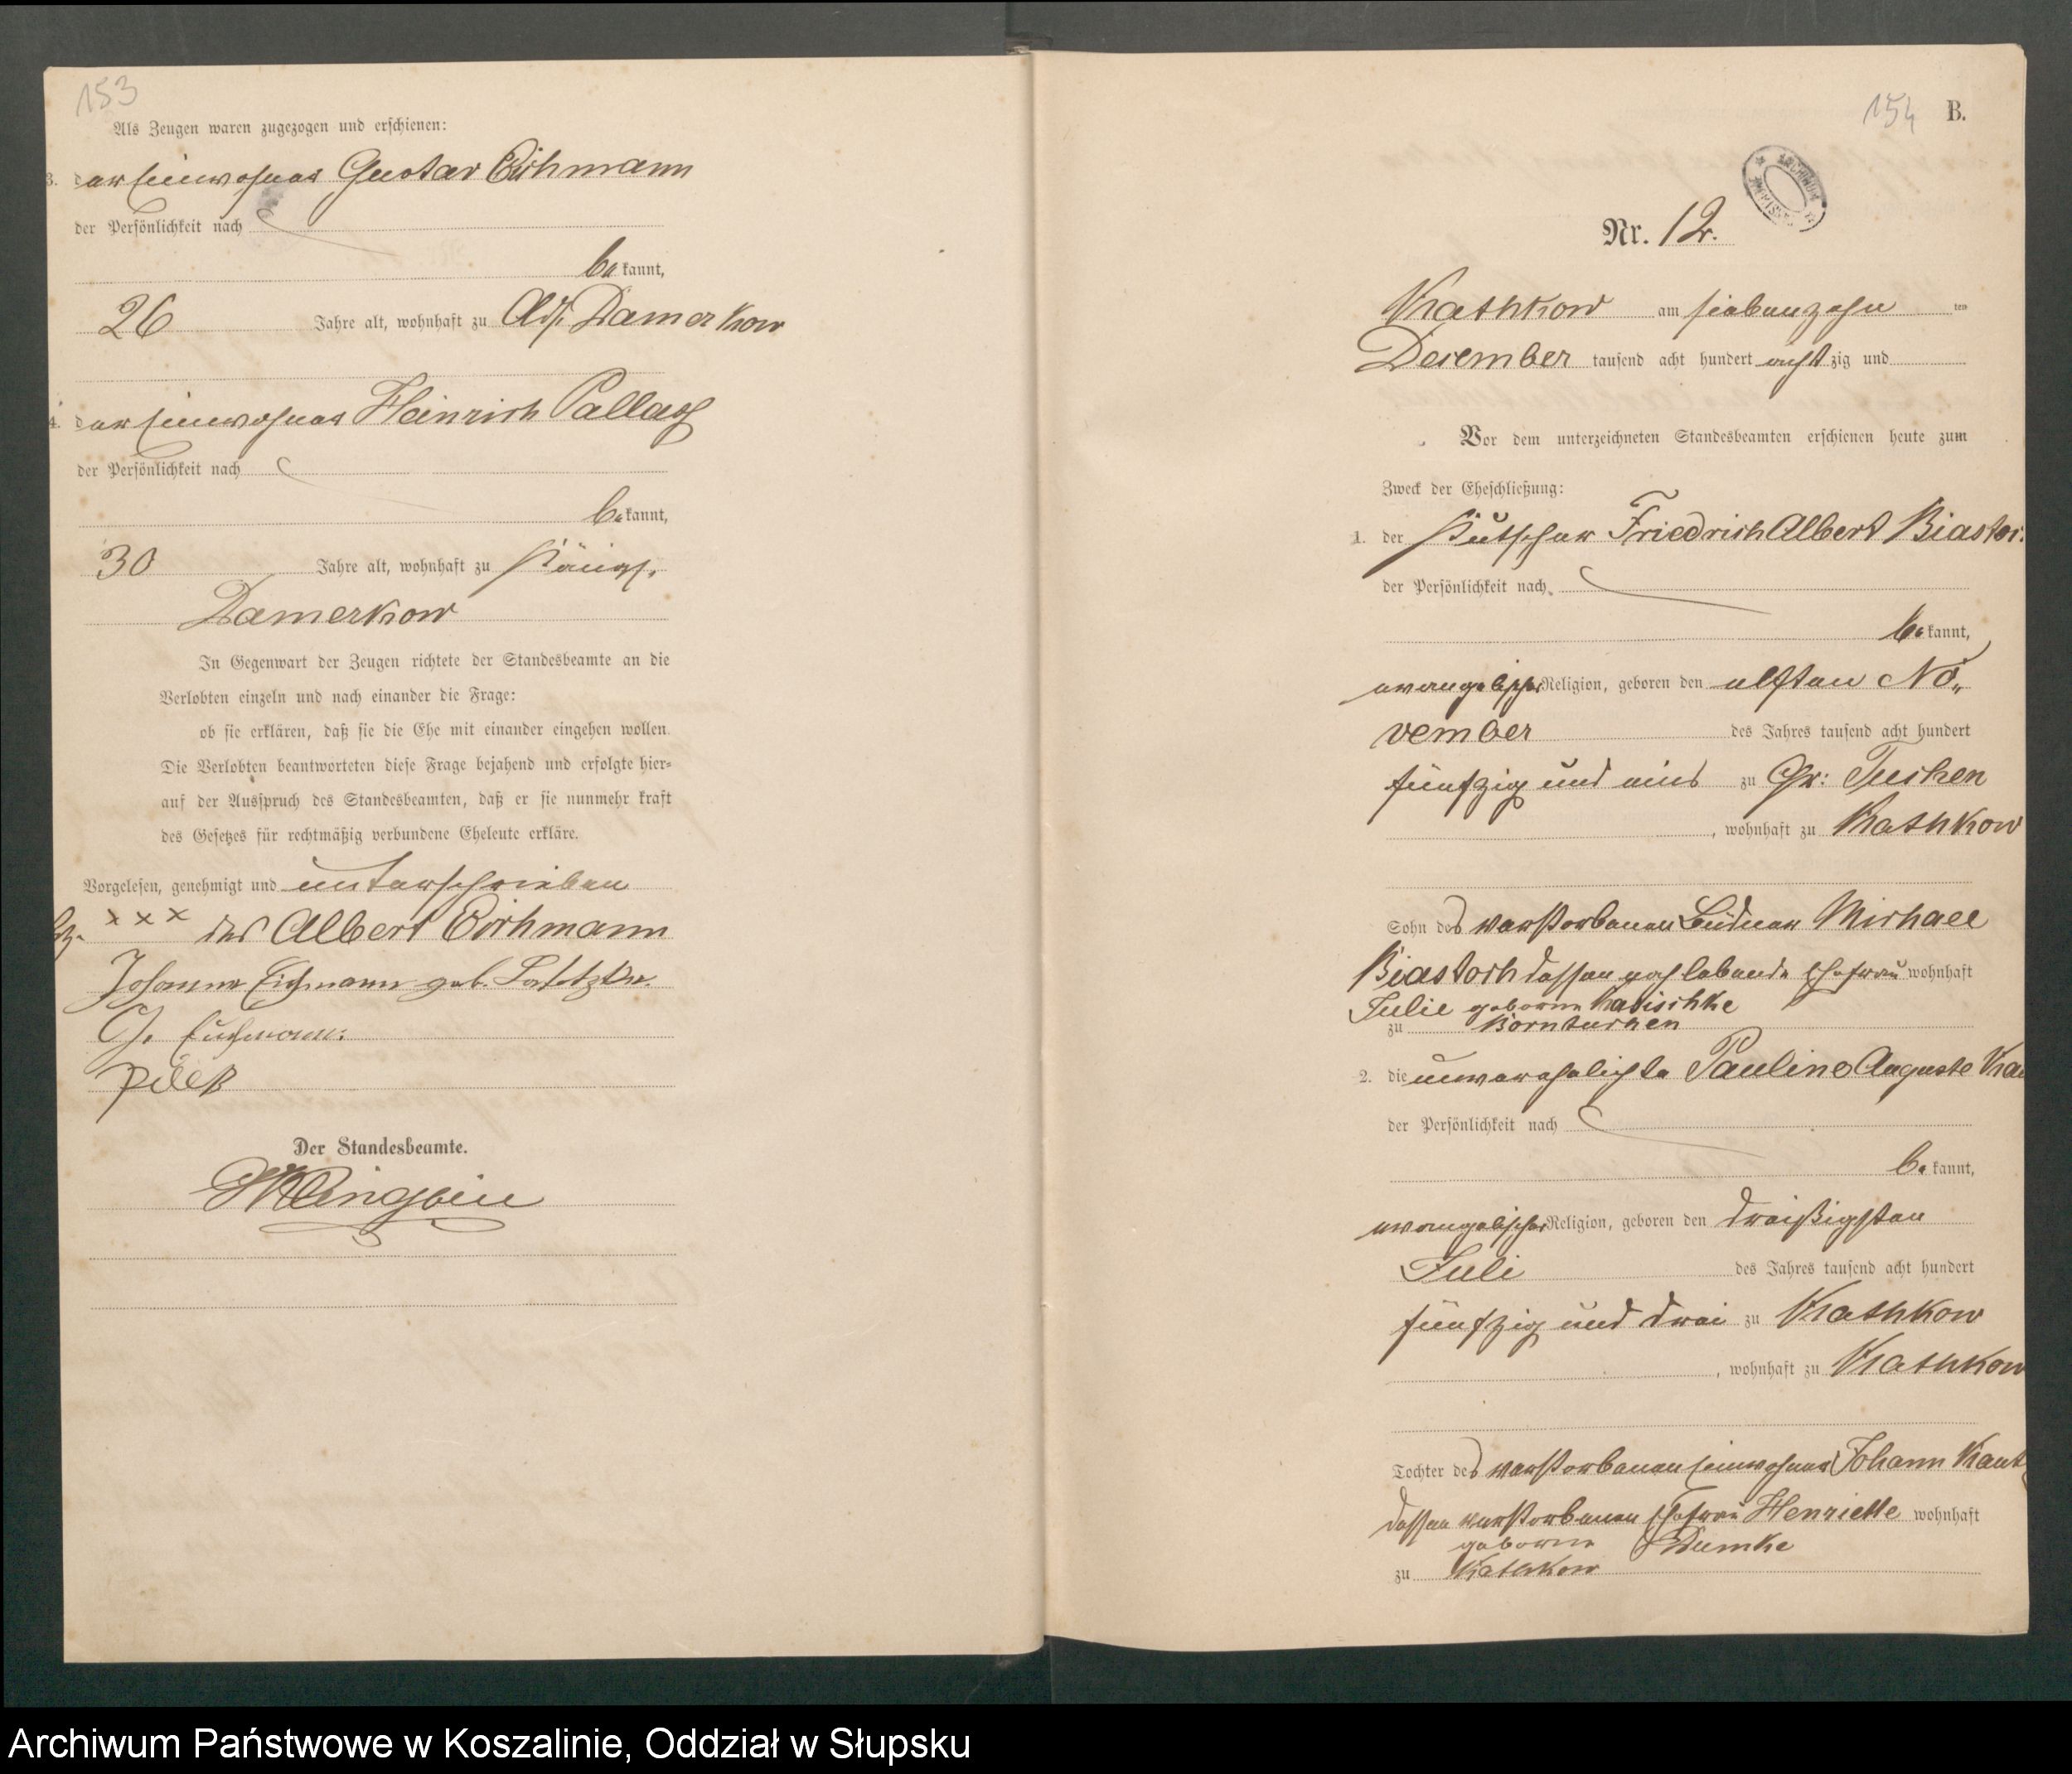 153
Als Zeugen waren zugezogen und erschienen:
3. der Einwohner Gustav Eichmann
der Persönlichkeit nach
be kannt,
26 Jahre alt, wohnhaft zu Adl. Damerkow
4. der Einwohner Heinrich Pallas
der Persönlichkeit nach
be kannt,
30 Jahre alt, wohnhaft zu Königl.
Damerkow
In Gegenwart der Zeugen richtete der Standesbeamte an die
Verlobten einzeln und nach einander die Frage:
ob sie erklären, daß sie die Ehe mit einander eingehen wollen.
Die Verlobten beantworteten diese Frage bejahend und erfolgte hier=
auf der Ausspruch des Standesbeamten, daß er sie nunmehr kraft
des Gesetzes für rechtmäßig verbundene Eheleute erkläre.
Vorgelesen, genehmigt und unterschrieben
xxx des Albert Eichmann
Johanne Eichmann geb.
G. Eichmann
Der Standesbeamte.
154 B.
Nr. 12.
Kathkow am siebenzehn ten
December tausend acht hundert acht zig und
Vor dem unterzeichneten Standesbeamten erschienen heute zum
Zweck der Eheschließung:
1. der Kutscher Friedrich Albert Biastoch
der Persönlichkeit nach
be kannt,
evangelischer Religion, geboren den elften No„
vember des Jahres tausend acht hundert
fünfzig und eins zu Gr: Tuchen
, wohnhaft zu Kathkow
Sohn des verstorbenen Büdner Michael
Biastoch dessen noch lebende Ehefrau wohnhaft
Julie geborne
zu Borntuchen
2. die unverehelichte Pauline Auguste
der Persönlichkeit nach
be kannt,
evangelischer Religion, geboren den dreißigsten
Juli des Jahres tausend acht hundert
fünfzig und drei zu Kathkow
, wohnhaft zu Kathkow
Tochter des verstorbenen Einwohner Johann
dessen verstorbenen Ehefrau Henriette wohnhaft
geborne Dumke
zu Kathkow
Archiwum Państwowe w Koszalinie, Oddział w Słupsku